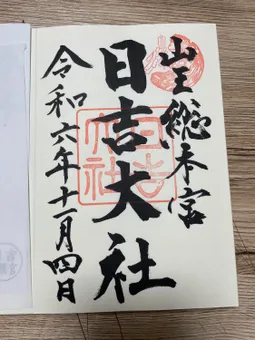 山王総本宮
日吉大社
令和六年十一月四日